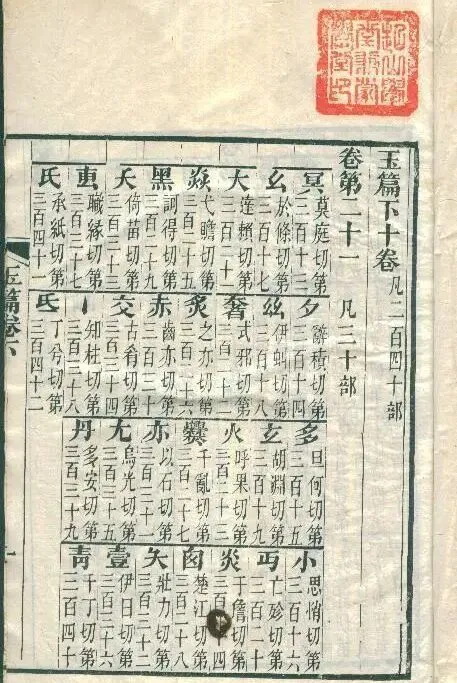 玉篇下十卷 凡二百四十部
卷第二十一 凡三十部
冥 莫庭切第三百一十三 夕 辭積切第三百一十四 多 旦何切第三百一十五 小 思悄切第三百一十六
幺 於條切第三百一十七 𢆶 伊虯切第三百一十八 玄 胡淵切第三百一十九 丏 亡殄切第三百二十
大 達賴切第三百二十一 奢 式邪切第三百二十二 火 呼果切第三百二十三 炎 于詹切第三百二十四
焱 弋贍切第三百二十五 炙 之亦切第三百二十六 爨 千亂切第三百二十七 囱 楚江切第三百二十八
黑 訶得切第三百二十九 赤 齒亦切第三百三十 亦 以石切第三百三十一 夨 壯力切第三百三十二
夭 倚苗切第三百三十三 交 古肴切第三百三十四 尢 烏光切第三百三十五 壹 伊日切第三百三十六
叀 職緣切第三百三十七 丶 知柱切第三百三十八 丹 多安切第三百三十九 靑 千丁切第三百四十
氏 承紙切第三百四十一 氐 丁兮切第三百四十二
玉篇卷六
一